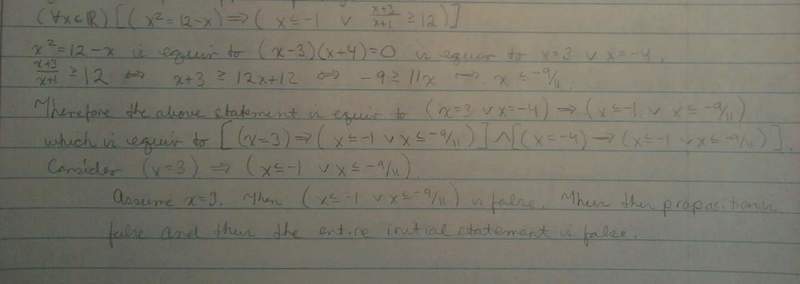 (∀x∈ℝ)[(x²=12-x)⇒(x≤-1 ∨ x+3/x+1 ≥12)]
x²=12-x is equiv to (x-3)(x+4)=0 is equiv to x=3 ∨ x=-4.
x+3/x+1 ≥12 ⇔ x+3 ≥ 12x+12 ⇔ -9 ≥ 11x → x ≤ -9/11
Therefore the above statement is equiv to (x=3 ∨ x=-4) ⇒ (x≤-1 ∨ x≤-9/11)
which is equiv to [(x=3)⇒(x≤-1 ∨ x≤-9/11)]∧[(x=-4)→(x≤-1 ∨ x≤-9/11)].
Consider (x=3) ⇒ (x≤-1 ∨ x≤-9/11)
Assume x=3. Then (x≤-1 ∨ x≤-9/11) is false. Then the proposition is
false and then the entire initial statement is false.